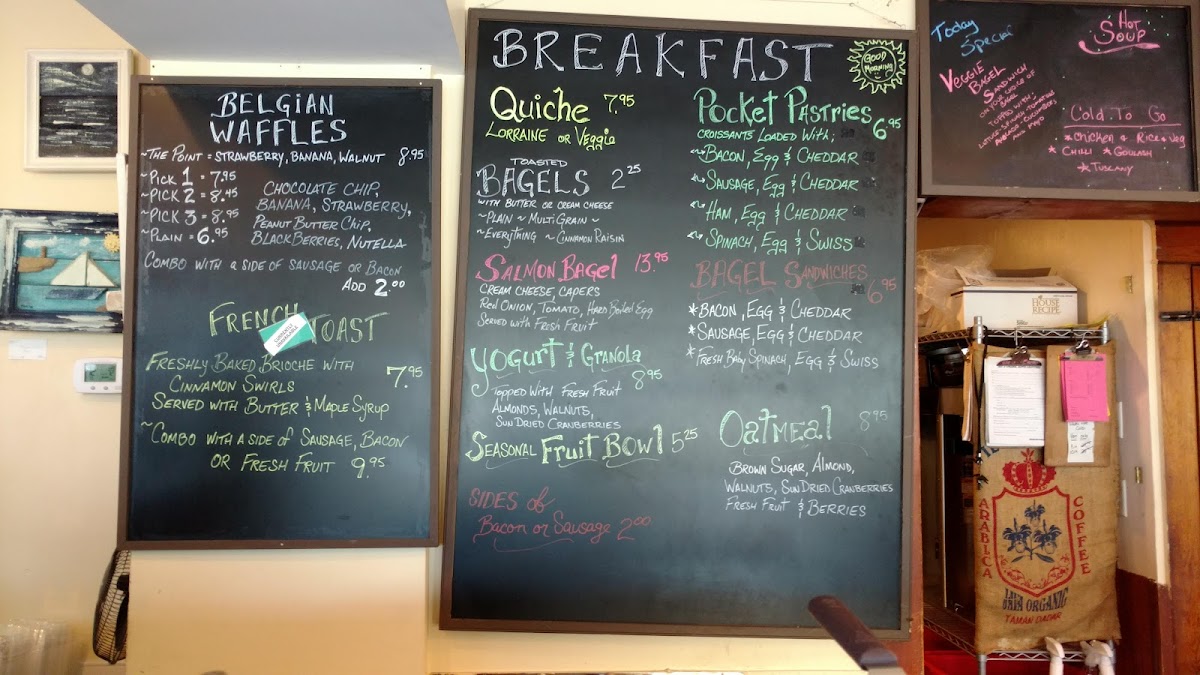 BELGIAN
WAFFLES
~THE POINT = STRAWBERRY, BANANA, WALNUT 8.95
~PICK 1 = 7.95
~PICK 2 = 8.45
~PICK 3 = 8.95
~PLAIN = 6.95
CHOCOLATE CHIP,
BANANA, STRAWBERRY,
PEANUT BUTTER CHIP,
BLACKBERRIES, NUTELLA
COMBO WITH A SIDE OF SAUSAGE OR BACON
ADD 2.00
FRENCH TOAST
CURRENTLY
UNAVAILABLE
FRESHLY BAKED BRIOCHE WITH
CINNAMON SWIRLS 7.95
SERVED WITH BUTTER & MAPLE SYRUP
~COMBO WITH A SIDE OF SAUSAGE, BACON
OR FRESH FRUIT 9.95
BREAKFAST
GOOD
MORNING
Quiche 7.95
LORRAINE OR Veggie
TOASTED
BAGELS 2.25
WITH BUTTER OR CREAM CHEESE
~PLAIN ~ MULTIGRAIN ~
~EVERYTHING ~ CINNAMON RAISIN
SALMON BAGEl 13.95
CREAM CHEESE, CAPERS
RED ONION, TOMATO, HARD BOILED EGG
SERVED WITH FRESH FRUIT
YOGURT & GRANOLA
8.95
TOPPED WITH FRESH FRUIT
ALMONDS, WALNUTS,
SUN DRIED CRANBERRIES
SEASONAL FRUIT BOWl 5.25
SIDES OF
Bacon or Sausage 2.00
POCKET PASTRIES
6.95
CROISSANTS LOADED WITH;
BACON, EGG & CHEDDAR
SAUSAGE, EGG & CHEDDAR
HAM, EGG & CHEDDAR
SPINACH, EGG & SWISS
BAGEL SANDWICHES
6.95
*BACON, EGG & CHEDDAR
*SAUSAGE, EGG & CHEDDAR
*FRESH BABY SPINACH, EGG & SWISS
OATMEAL 8.95
BROWN SUGAR, ALMOND,
WALNUTS, SUN DRIED CRANBERRIES
FRESH FRUIT & BERRIES
Today
Special
VEGGIE
BAGEL
SANDWICH
ON YOUR CHOICE OF
BAGEL
TOPPED WITH;
LETTUCE, SPINACH, TOMATOES
AVOCADO, CUCUMBERS
AND MAYO
HOT
SOUP
COLD TO GO
*CHICKEN & RICE & VEG
*CHILLI *GOULASH
*TUSCANY
HOUSE
RECIPE
ARABICA
COFFEE
JAVA
ORGANIC
TAMAN DADAR